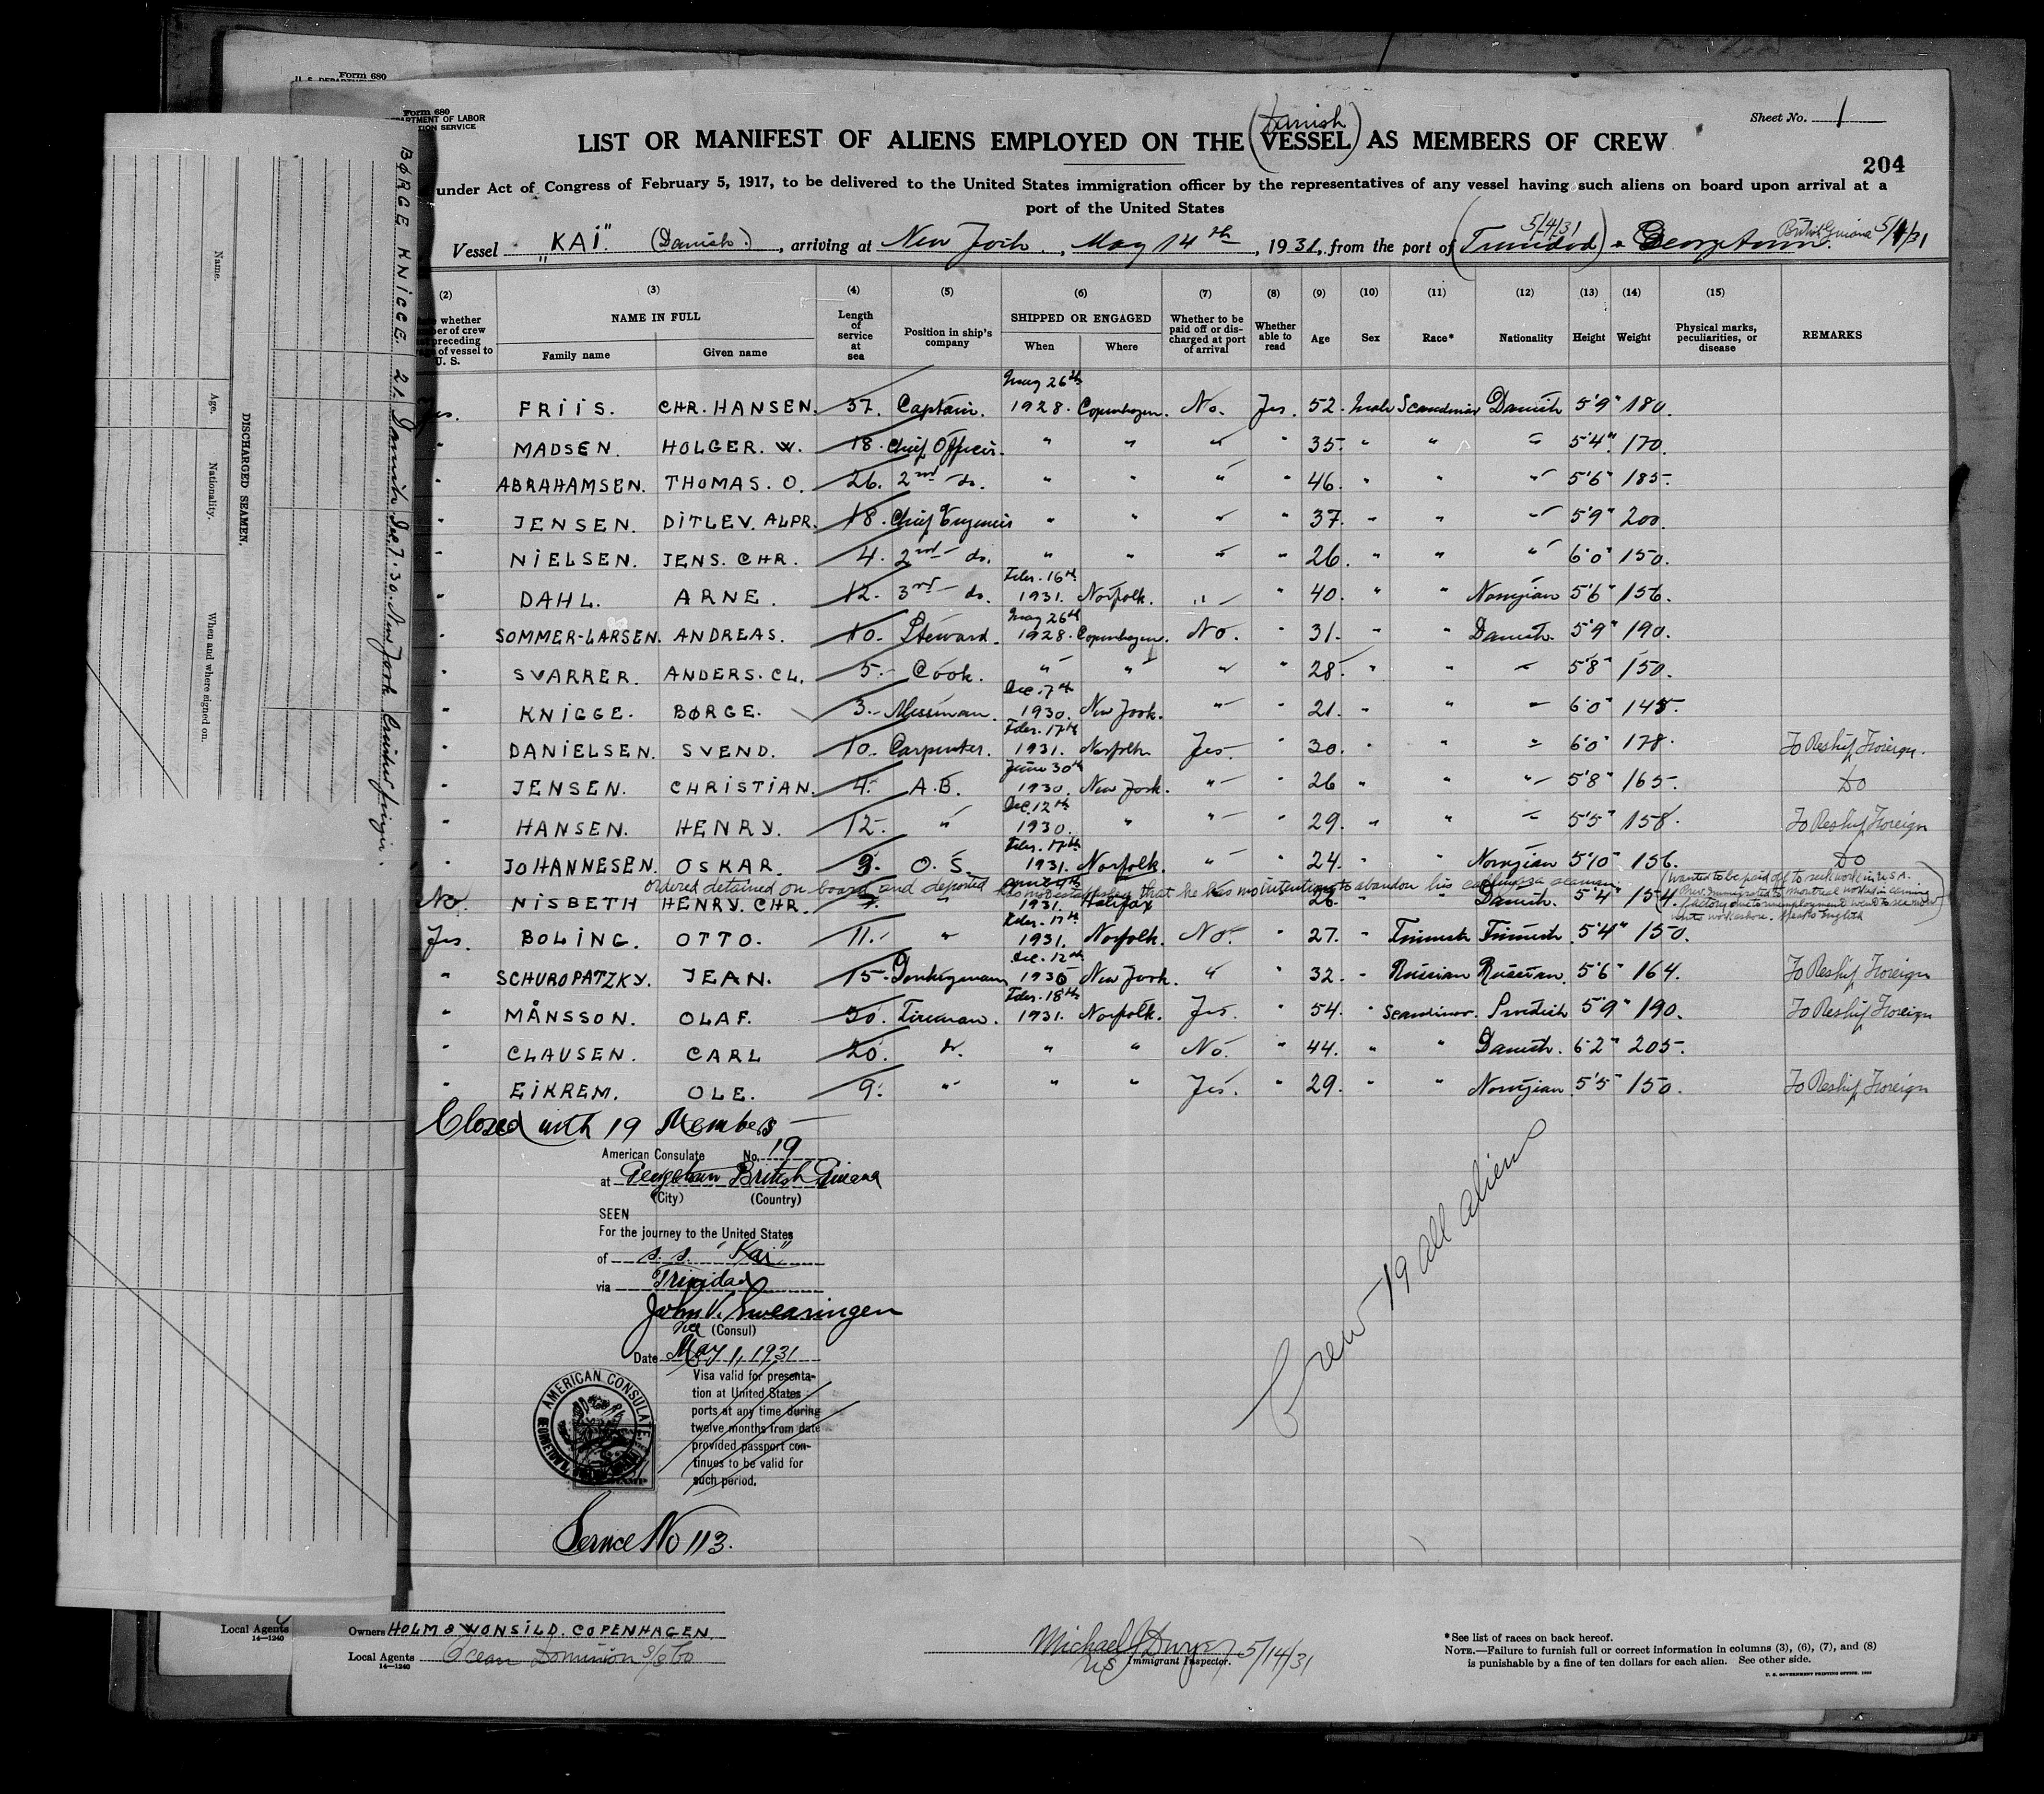 Form 680
Form 680
DEPARTMENT OF LABOR
Sheet No. 1
LIST OR MANIFEST OF ALIENS EMPLOYED ON THE (Danish VESSEL) AS MEMBERS OF CREW
204
under Act of Congress of February 5, 1917, to be delivered to the United States immigration officer by the representatives of any vessel having such aliens on board upon arrival at a
port of the United States
Vessel "KAI" (Danish.), arriving at New York, May 14th, 1931, from the port of (Trinidad) 5/4/31 Georgetown British Guiana 5/1/31
(2) (3) (4) (5) (6) (7) (8) (9) (10) (11) (12) (13) (14) (15)
NAME IN FULL
Family name Given name
Length of service at sea
Position in ship's company
SHIPPED OR ENGAGED
When Where
Whether to be paid off or discharged at port of arrival
Whether able to read
Age Sex Race* Nationality Height Weight
Physical marks, peculiarities, or disease
REMARKS
Yes. FRIIS. CHR. HANSEN. 37. Captain. May 26th 1928. Copenhagen. No. Yes. 52. Male Scandinav Danish 5'9" 180.
" MADSEN. HOLGER. W. 18. Chief Officer. " " " " 35. " " " 5'4" 170.
" ABRAHAMSEN. THOMAS. O. 26. 2nd do. " " " " 46. " " " 5'6" 185.
" JENSEN. DITLEV. ALPR. 18. Chief Engineer " " " " 37. " " " 5'9" 200.
" NIELSEN. JENS. CHR. 4. 2nd do. " " " " 26. " " " 6'0" 150.
" DAHL. ARNE. 12. 3rd do. Febr. 16th 1931. Norfolk. " " 40. " " Norwgian 5'6" 156.
" SOMMER-LARSEN. ANDREAS. 10. Steward. May 26th 1928. Copenhagen. No. " 31. " " Danish. 5'9" 190.
" SVARRER. ANDERS. CL. 5. Cook. " " " " 28. " " " 5'8" 150.
" KNIGGE. BØRGE. 3. Messman. Dec. 7th 1930. New York. " " 21. " " " 6'0" 145.
" DANIELSEN. SVEND. 10. Carpenter. Febr. 17th 1931. Norfolk Yes " 30. " " " 6'0" 178. To Reship Foreign.
" JENSEN. CHRISTIAN. 4. A.B. June 30th 1930. New York. " " 26 " " " 5'8" 165. Do
" HANSEN. HENRY. 12. " Dec. 12th 1930. " " " 29. " " " 5'5" 158. To Reship Foreign
" JOHANNESEN. OSKAR. 9. O.S. Febr. 17th 1931. Norfolk. " " 24. " " Norwgian 5'10" 156. Do
ordered detained on board and deported has not established that he has no intention to abandon his calling as a seaman
No. NISBETH HENRY. CHR. 7. " 1931. Halifax " " 26. " " Danish. 5'4" 154. (wanted to be paid off to seek work in U.S.A.
Yes. BOLING. OTTO. 11. " Febr. 17th 1931. Norfolk. No. " 27. " Finnish Finnish. 5'4" 150.
" SCHUROPATZKY. JEAN. 15. Donkeyman Dec. 12th 1930 New York. " " 32. " Russian Russian. 5'6" 164. To Reship Foreign
" MÅNSSON. OLAF. 30. Fireman. Febr. 18th 1931. Norfolk. Yes. " 54. " Scandinav. Swedish 5'9" 190. To Reship Foreign
" CLAUSEN. CARL 20. do. " " No. " 44. " " Danish. 6'2" 205.
" EIKREM. OLE. 9. " " " Yes. " 29. " " Norwgian 5'5" 150. To Reship Foreign
Closed with 19 Members
American Consulate No. 19
at Georgetown British Guiana
(City) (Country)
SEEN
For the journey to the United States
of s.s. "Kai"
via Trinidad
John V. Swearingen
Vice (Consul)
Date May 1, 1931
Visa valid for presenta-
tion at United States
ports at any time during
twelve months from date
provided passport con-
tinues to be valid for
such period.
AMERICAN CONSULATE
Service No 113.
Crew 19 all aliens
Owners HOLM & WONSILD. COPENHAGEN.
Local Agents Ocean Dominion S/S Co
14—1240
Michael J Dwyer 5/14/31
US Immigrant Inspector.
*See list of races on back hereof.
NOTE.—Failure to furnish full or correct information in columns (3), (6), (7), and (8)
is punishable by a fine of ten dollars for each alien. See other side.
U. S. GOVERNMENT PRINTING OFFICE
Local Agents
14—1240
BØRGE KNIGGE 21. Danish Dec 7. 30. New York
DISCHARGED SEAMEN.
Name. Age. Nationality. When and where signed on.